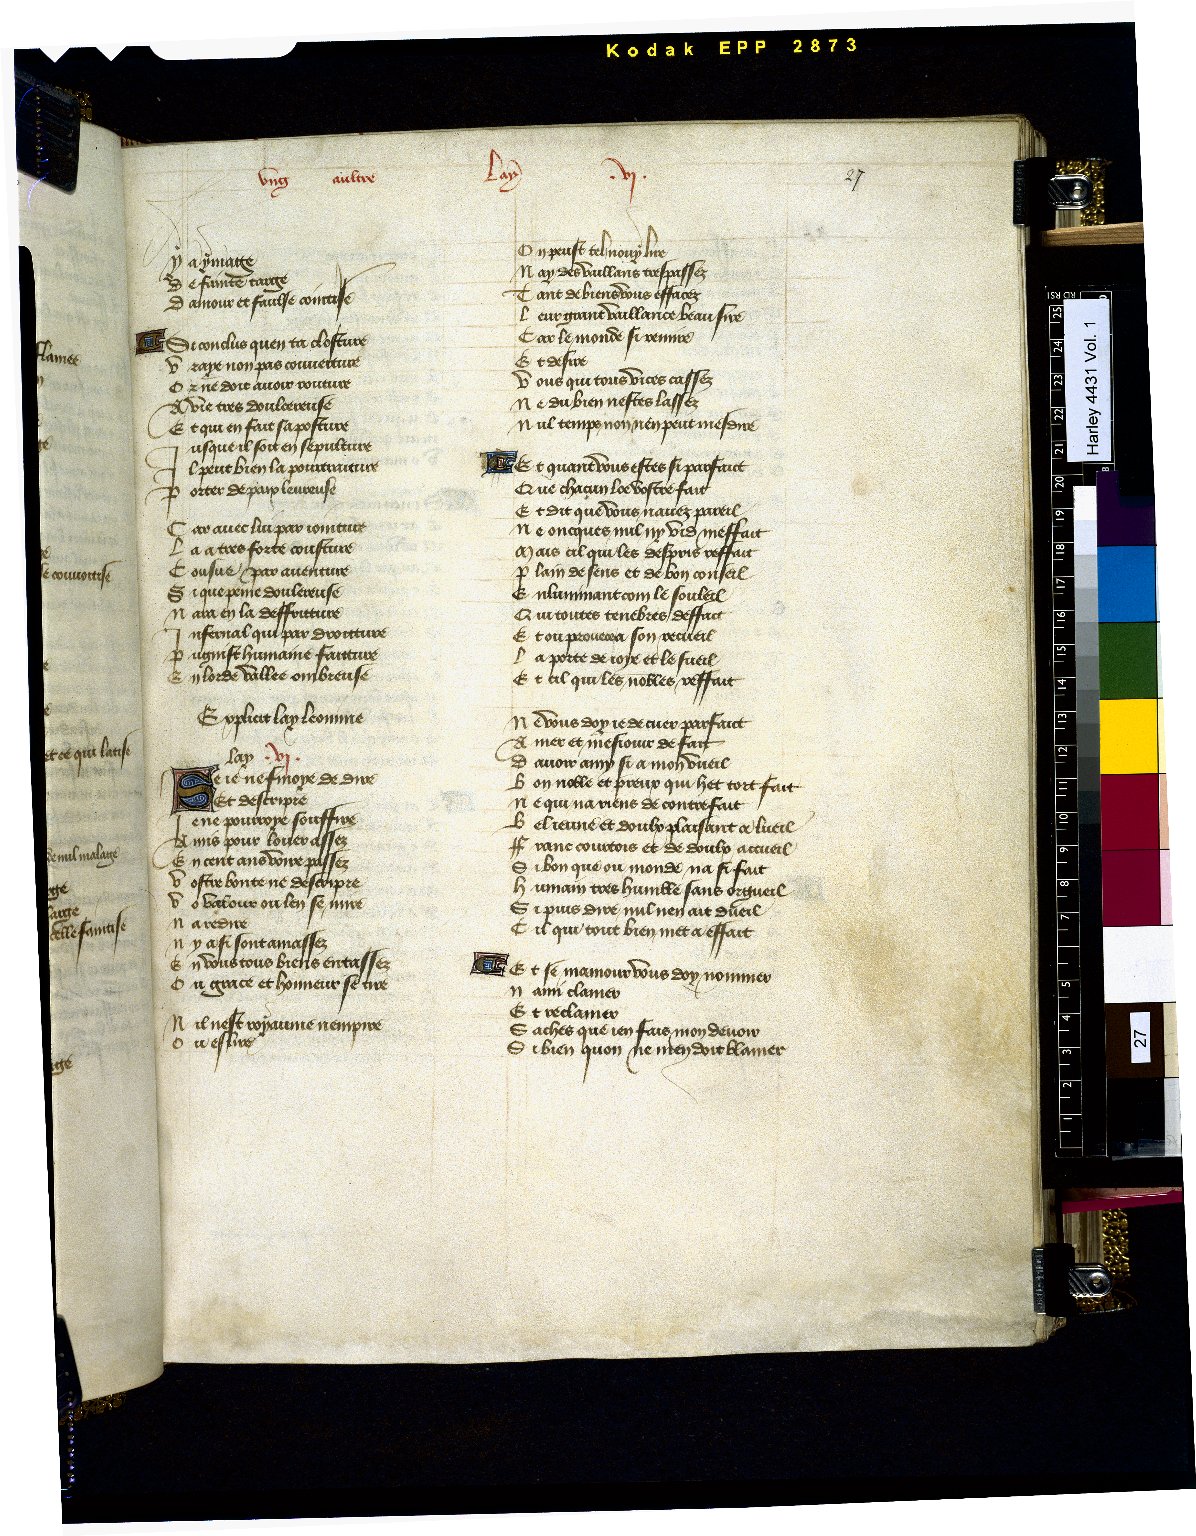 Kodak EPP 2873
vng aultre Lay .vi. 27
Y a ymage
De fainte targe
Damour et faulse cointise
Si conclus quen ta closture
Vraye non pas couuerture
Or ne doit auoir routure
A vie tres doulcereuse
Et qui en fait sa posture
Jusque il soit en sepulture
Il peut bien la pourtraiture
Porter de paix leureuse
Car auec lui par iointure
La a tres forte cousture
Cousue par auenture
Si que peine doulereuse
Nara en la deffriture
Infernal qui par droitture
Pugnist humaine faitture
En lorde vallee ombreuse
Explicit lay leonime
lay .vi.
Se ie ne finoye de dire
Et descripre
Je ne pourroye souffire
Amis pour louer assez
En cent ans voire passez
Vostre bonte ne descripre
Vo valour ou len se mire
Na redire
Ny a si sont amassez
En vous tous biens entassez
Ou grace et honneur se tire
Nil nest royaume nempire
Ou eslire
On peust tel nouy lire
Nay des vaillans trespassez
Tant de biens vous effacez
Leur grant vaillance beau sire
Car le monde si remire
Et desire
Vous qui tous vices cassez
Ne du bien nestes lassez
Nul temps non nen peut mesdire
Et quant vous estes si parfaict
Que chacun loe vostre fait
Et dit que vous nauez pareil
Ne oncques nul ny vid meffait
Mais cil qui les despris reffait
Plain de sens et de bon conseil
Enluminant com le souleil
Qui toutes tenebres deffait
Et ou prouecea son recueil
La porte de ioye et le sueil
Et cil qui les nobles reffait
Ne vous doy ie de cuer parfaict
Amer et mesiouir de fait
Dauoir amy si a mon vueil
Bon noble et preux qui het tort fait
Ne qui na riens de contrefait
Bel ieune et doulx plaisant a lueil
Franc courtois et de doulx accueil
Si bon que ou monde na si fait
Humain tres humble sans orgueil
Si puis dire nul nen ait dueil
Cil qui tout bien met a effait
Et se mamour vous doy nommer
Nami clamer
Et reclamer
Saches que ien fais mon deuoir
Si bien quon ne men doit blamer
Harley 4431 Vol. 1
27